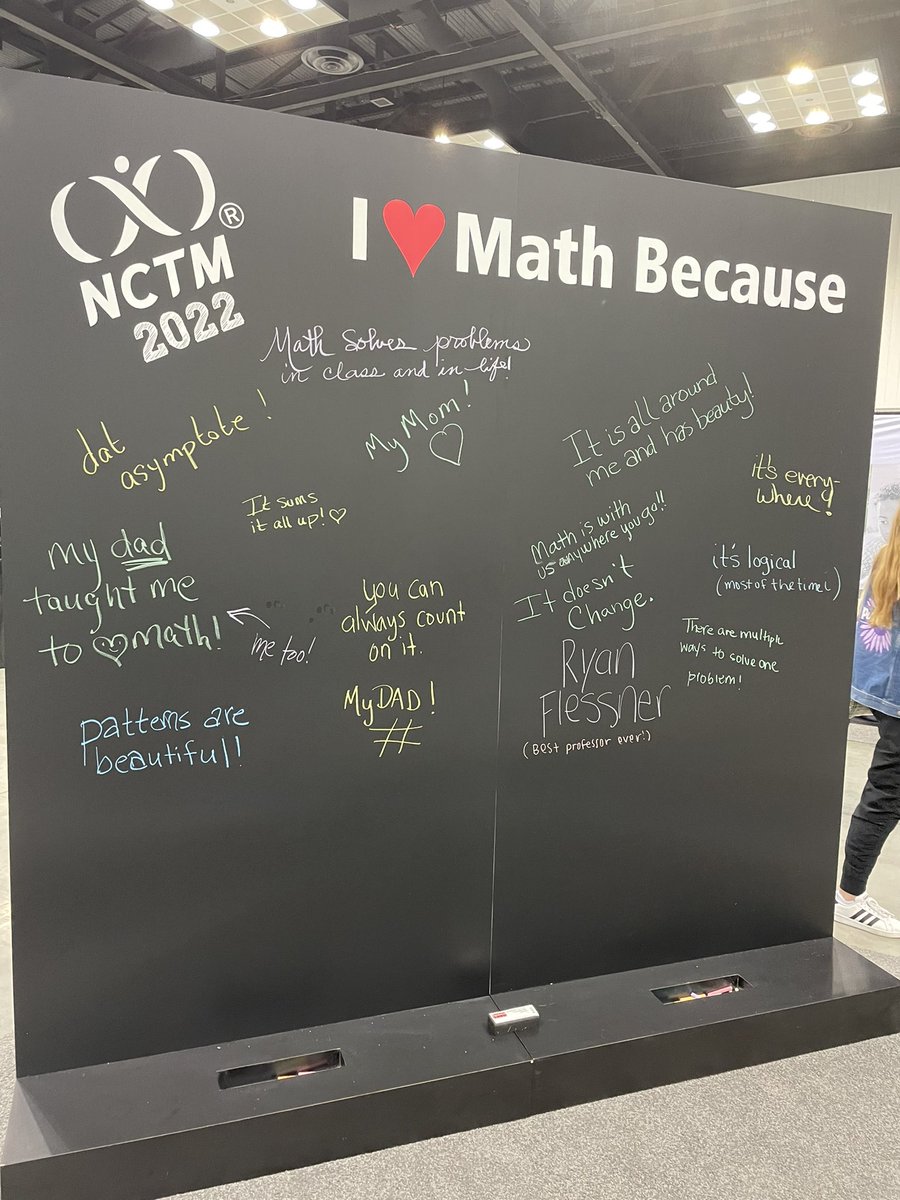 NCTM®
2022
I ♥ Math Because
Math solves problems
in class and in life!
dat
asymptote!
My Mom! ♡
It is all around
me and has beauty!
it's every-
where!
It sums
it all up! ♡
Math is with
us anywhere you go!!
it's logical
(most of the time)
my dad
taught me
to ♡ math!
me too!
you can
always count
on it.
It doesn't
Change.
There are multiple
ways to solve one
problem!
Ryan
Flessner
(Best professor ever!)
My DAD!
#
patterns are
beautiful!